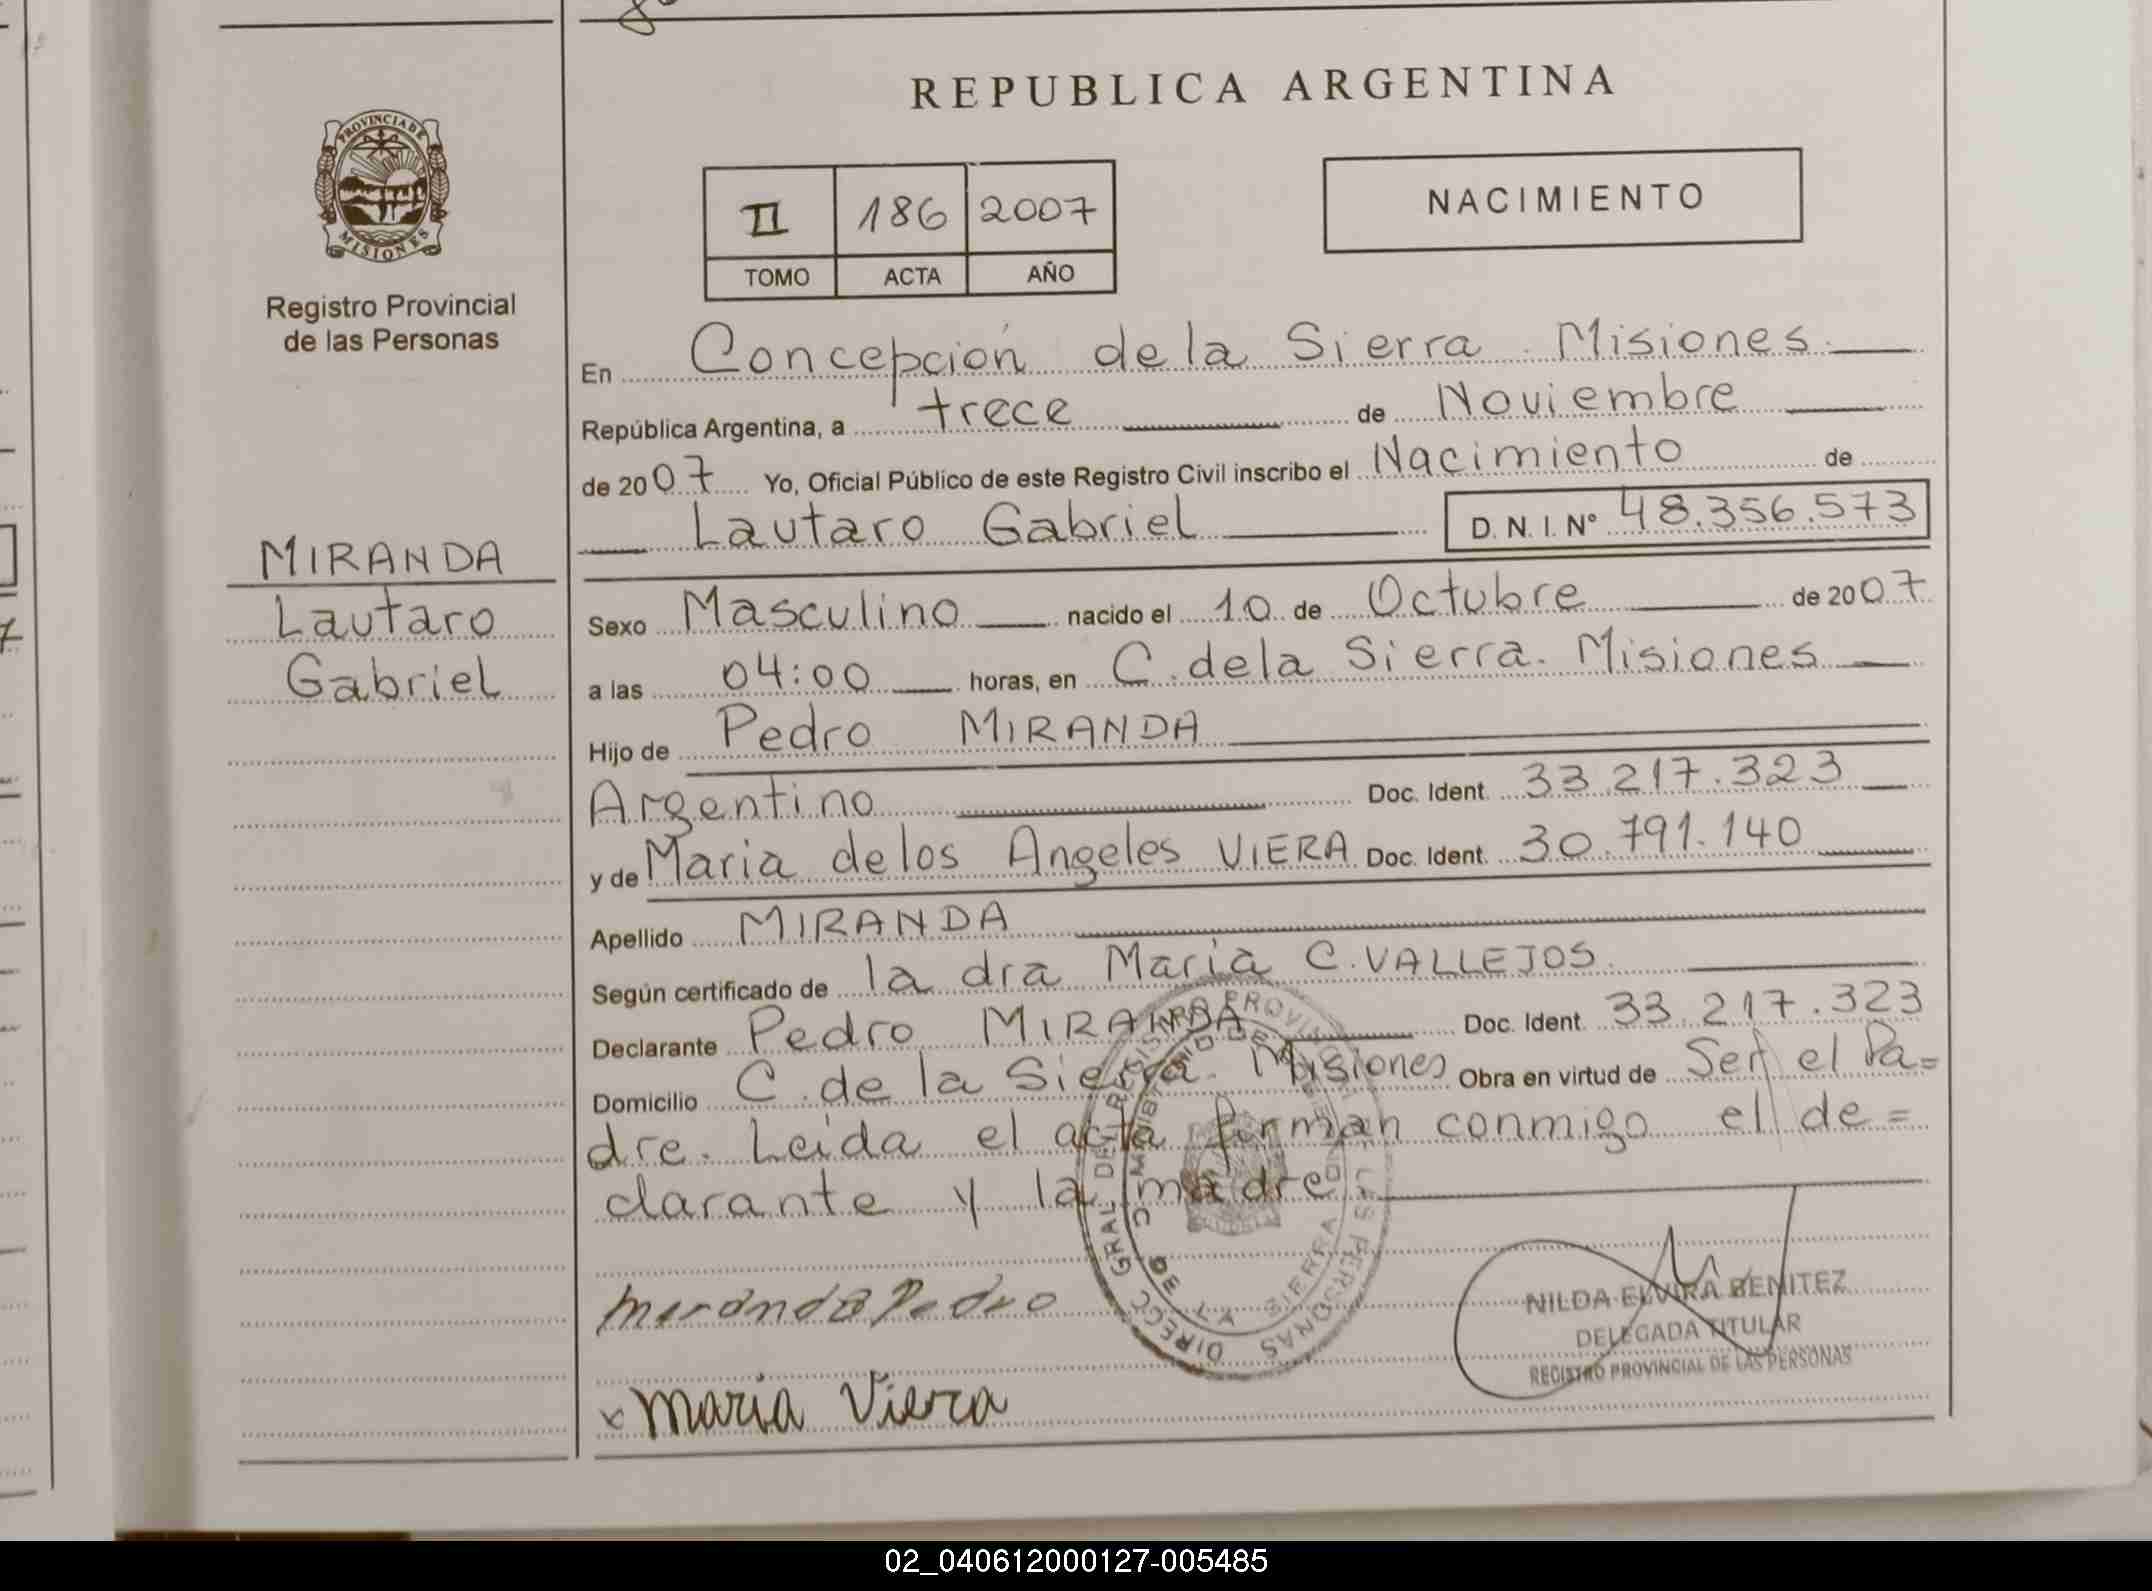 REPUBLICA ARGENTINA
PROVINCIA DE
MISIONES
Registro Provincial
de las Personas
II 186 2007
TOMO ACTA AÑO
NACIMIENTO
MIRANDA
Lautaro
Gabriel
En Concepción de la Sierra . Misiones.
República Argentina, a trece de Noviembre
de 2007 Yo, Oficial Público de este Registro Civil inscribo el Nacimiento de
Lautaro Gabriel D. N. I. Nº 48.356.573
Sexo Masculino nacido el 10 de Octubre de 2007
a las 04:00 horas, en C. de la Sierra. Misiones
Hijo de Pedro MIRANDA
Argentino Doc. Ident. 33.217.323
y de Maria de los Angeles VIERA Doc. Ident. 30.791.140
Apellido MIRANDA
Según certificado de la dra Maria C. VALLEJOS.
Declarante Pedro MIRANDA Doc. Ident. 33.217.323
Domicilio C. de la Sierra. Misiones Obra en virtud de Ser el Pa=
dre. Leida el acta firman conmigo el de=
clarante y la madre
DIRECC GRAL DEL REGISTRO PROVINCIAL DE LAS PERSONAS
DE LA SIERRA
Miranda Pedro
x Maria Viera
NILDA ELVIRA BENITEZ
DELEGADA TITULAR
REGISTRO PROVINCIAL DE LAS PERSONAS
02_040612000127-005485